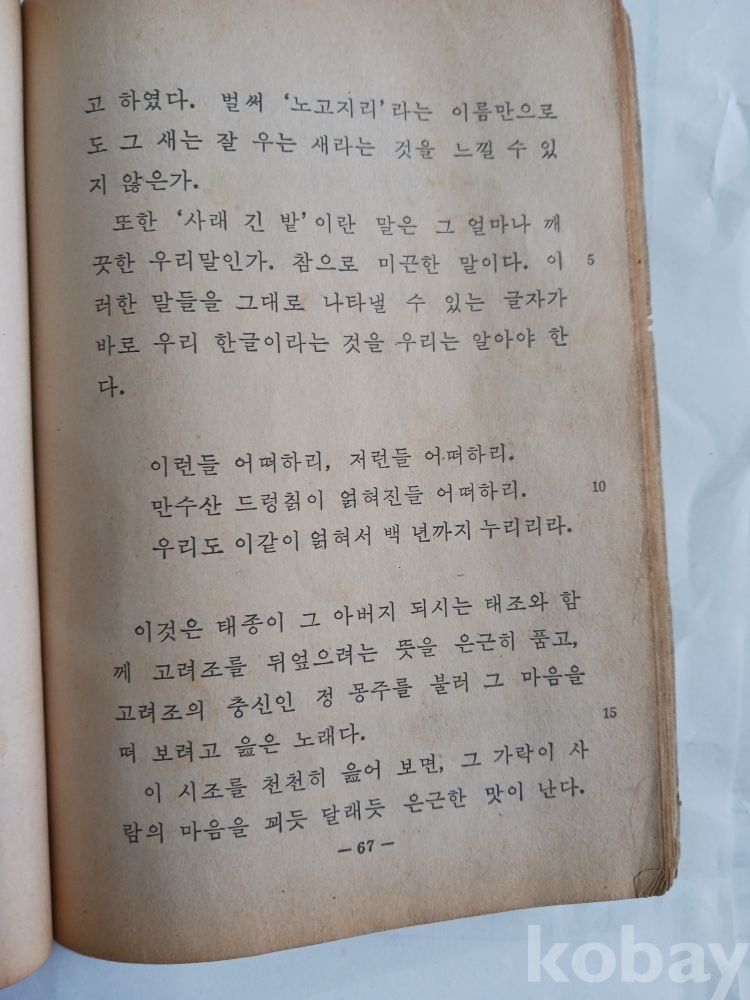 고 하였다. 벌써 '노고지리'라는 이름만으로
도 그 새는 잘 우는 새라는 것을 느낄 수 있
지 않은가.
또한 '사래 긴 밭'이란 말은 그 얼마나 깨
끗한 우리말인가. 참으로 미끈한 말이다. 이 5
러한 말들을 그대로 나타낼 수 있는 글자가
바로 우리 한글이라는 것을 우리는 알아야 한
다.
이런들 어떠하리, 저런들 어떠하리.
만수산 드렁칡이 얽혀진들 어떠하리. 10
우리도 이같이 얽혀서 백 년까지 누리리라.
이것은 태종이 그 아버지 되시는 태조와 함
께 고려조를 뒤엎으려는 뜻을 은근히 품고,
고려조의 충신인 정 몽주를 불러 그 마음을
떠 보려고 읊은 노래다. 15
이 시조를 천천히 읊어 보면, 그 가락이 사
람의 마음을 꾀듯 달래듯 은근한 맛이 난다.
— 67 —
kobay